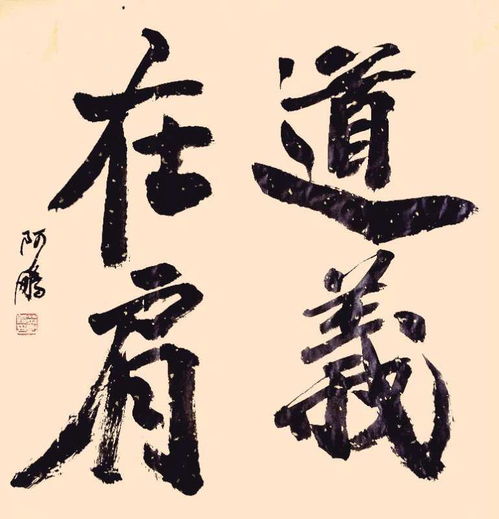 道義
在肩
阿鵬